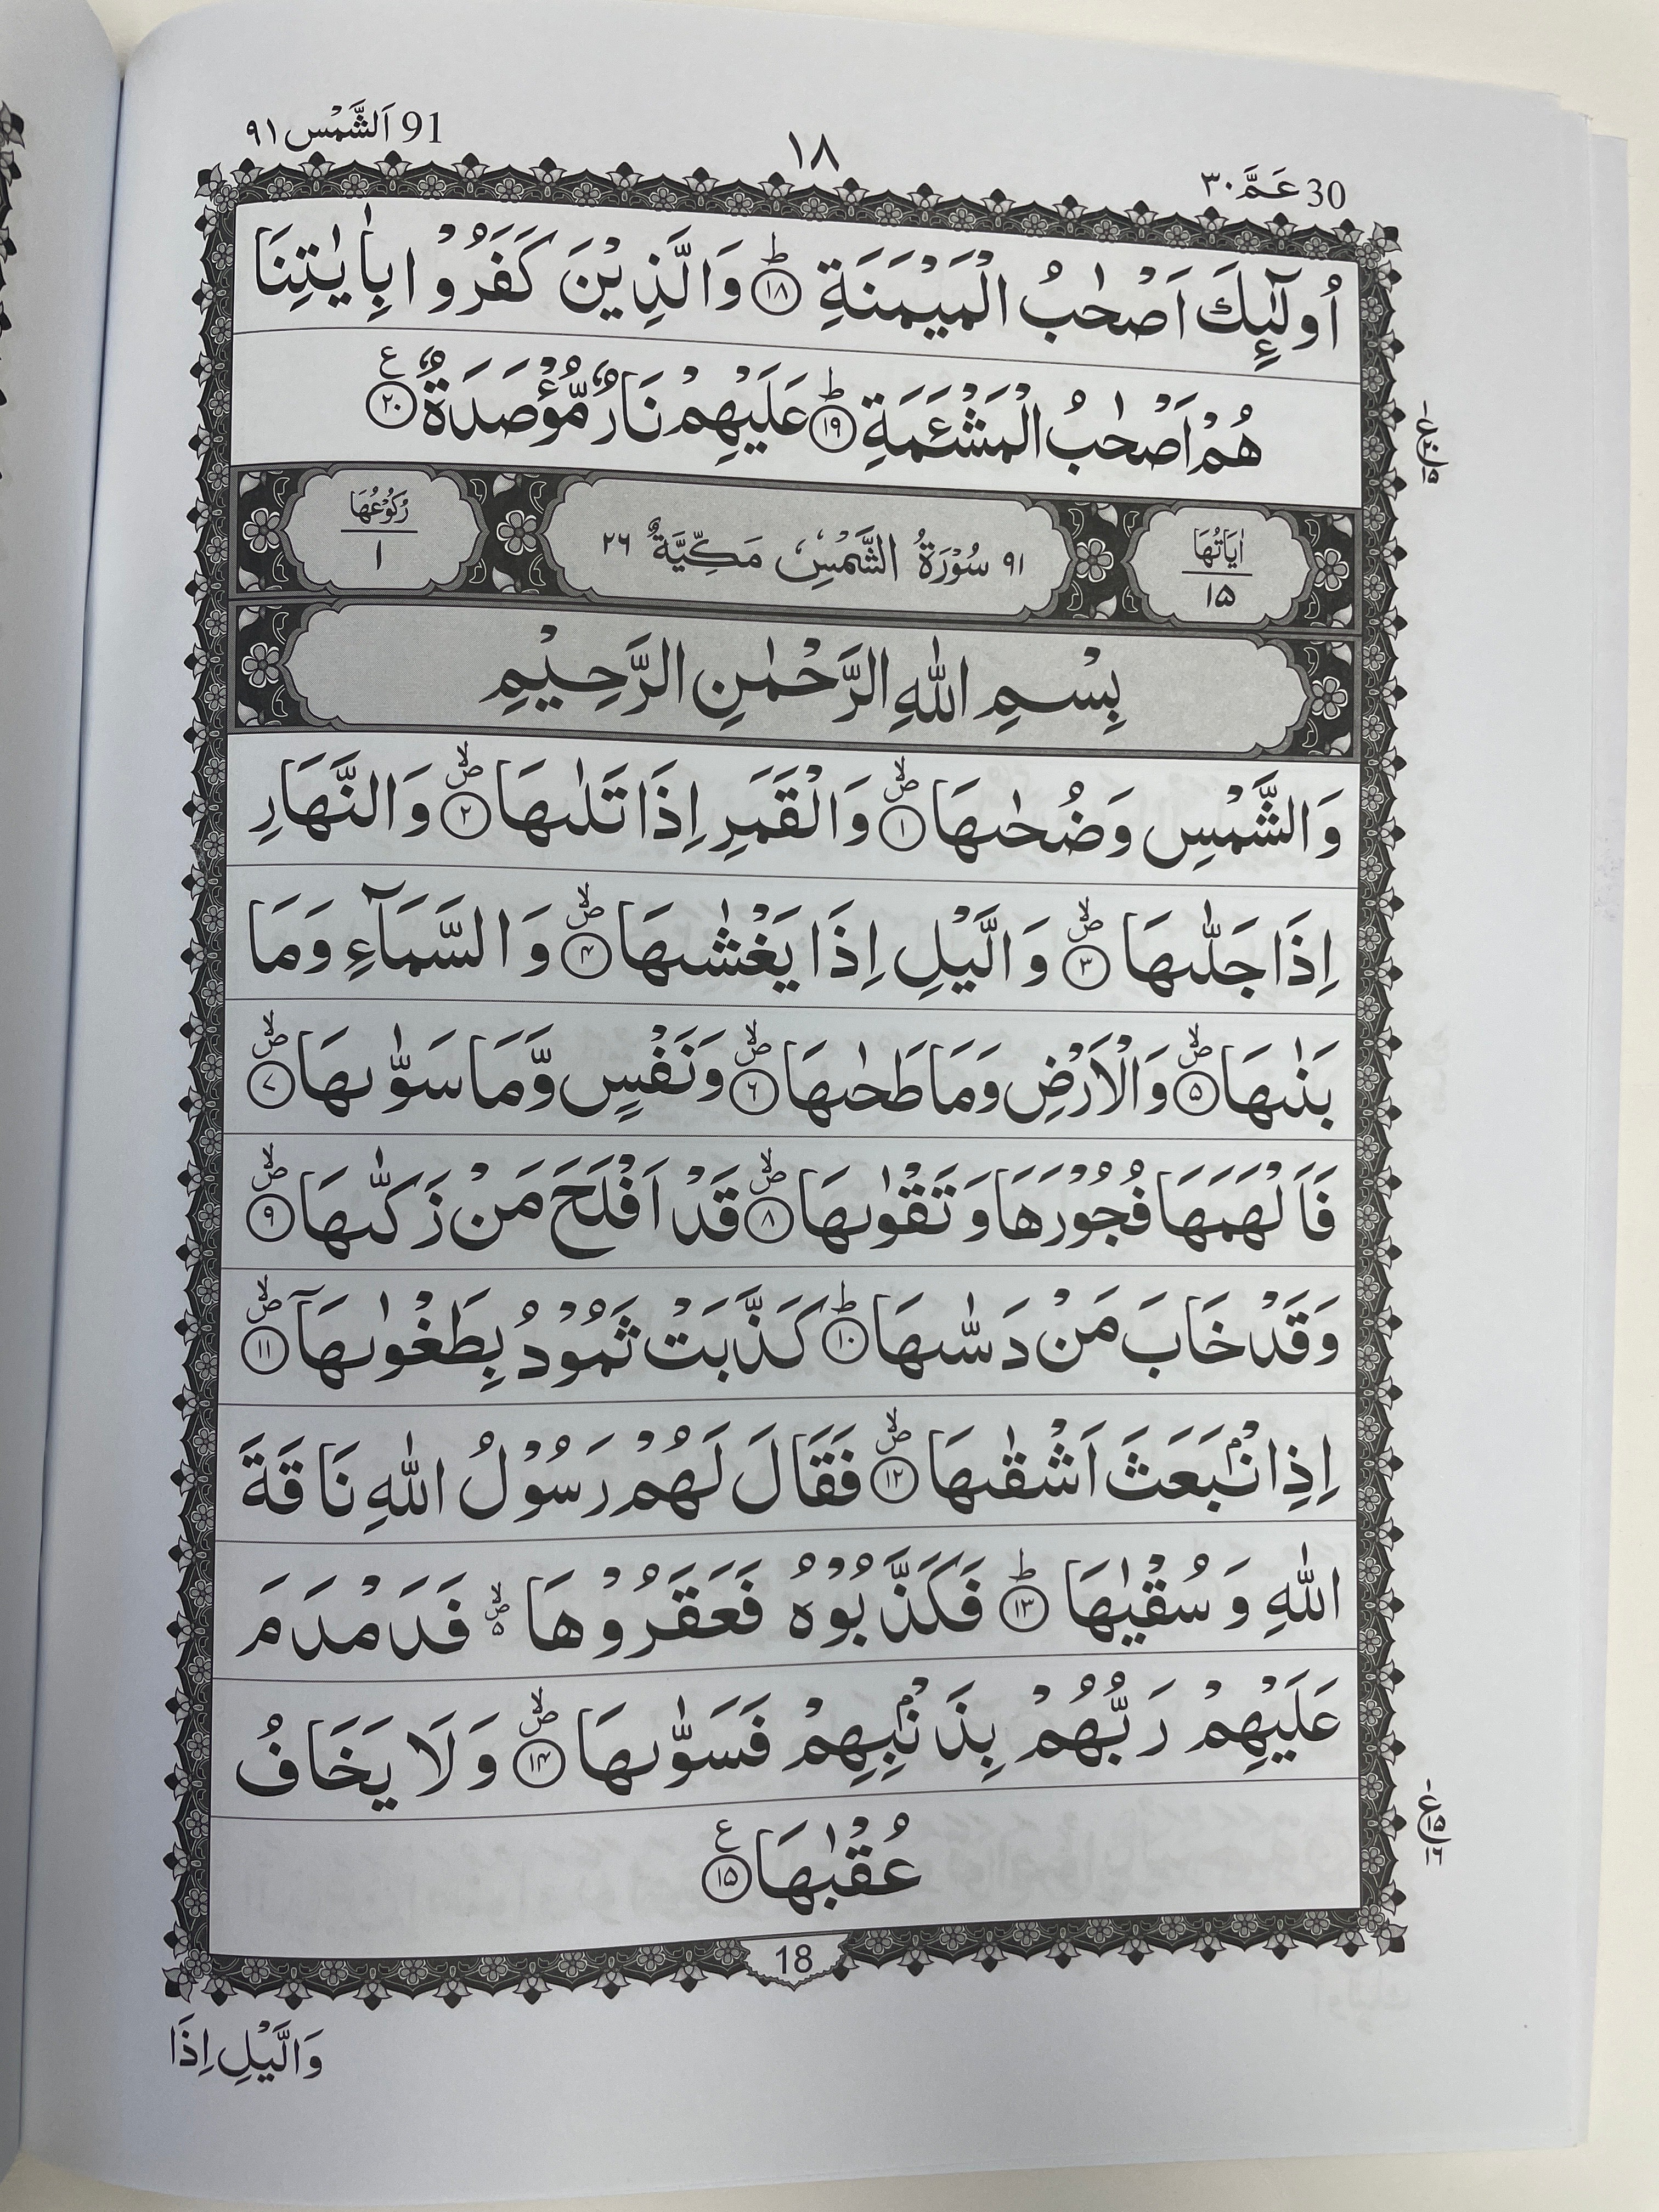 30 عَمَّ ٣٠
١٨
91 اَلشَّمْس ٩١
اُولٰٓئِكَ اَصْحٰبُ الْمَيْمَنَةِ ؕ ﴿۱۸﴾ وَالَّذِيْنَ كَفَرُوْا بِاٰيٰتِنَا
هُمْ اَصْحٰبُ الْمَشْـَٔمَةِ ؕ ﴿۱۹﴾ عَلَيْهِمْ نَارٌ مُّؤْصَدَةٌ ﴿۲۰﴾ ع
اٰيَاتُهَا ١٥
٩١ سُوْرَةُ الشَّمْسِ مَكِّيَّةٌ ٢٦
رُكُوْعُهَا ١
بِسْمِ اللّٰهِ الرَّحْمٰنِ الرَّحِيْمِ
وَالشَّمْسِ وَضُحٰىهَا ۪ۙ ﴿۱﴾ وَالْقَمَرِ اِذَا تَلٰىهَا ۪ۙ ﴿۲﴾ وَالنَّهَارِ
اِذَا جَلّٰىهَا ۪ۙ ﴿۳﴾ وَالَّيْلِ اِذَا يَغْشٰىهَا ۪ۙ ﴿۴﴾ وَالسَّمَآءِ وَمَا
بَنٰىهَا ۪ۙ ﴿۵﴾ وَالْاَرْضِ وَمَا طَحٰىهَا ۪ۙ ﴿۶﴾ وَنَفْسٍ وَّمَا سَوّٰىهَا ۪ۙ ﴿۷﴾
فَاَلْهَمَهَا فُجُوْرَهَا وَتَقْوٰىهَا ۪ۙ ﴿۸﴾ قَدْ اَفْلَحَ مَنْ زَكّٰىهَا ۪ۙ ﴿۹﴾
وَقَدْ خَابَ مَنْ دَسّٰىهَا ؕ ﴿۱۰﴾ كَذَّبَتْ ثَمُوْدُ بِطَغْوٰىهَاۤ ۪ۙ ﴿۱۱﴾
اِذِ انْۢبَعَثَ اَشْقٰىهَا ۪ۙ ﴿۱۲﴾ فَقَالَ لَهُمْ رَسُوْلُ اللّٰهِ نَاقَةَ
اللّٰهِ وَسُقْيٰهَا ؕ ﴿۱۳﴾ فَكَذَّبُوْهُ فَعَقَرُوْهَا ۪ۙ ۵ فَدَمْدَمَ
عَلَيْهِمْ رَبُّهُمْ بِذَنْۢبِهِمْ فَسَوّٰىهَا ۪ۙ ﴿۱۴﴾ وَلَا يَخَافُ
عُقْبٰهَا ﴿۱۵﴾ ع
18
وَالَّيْلِ اِذَا